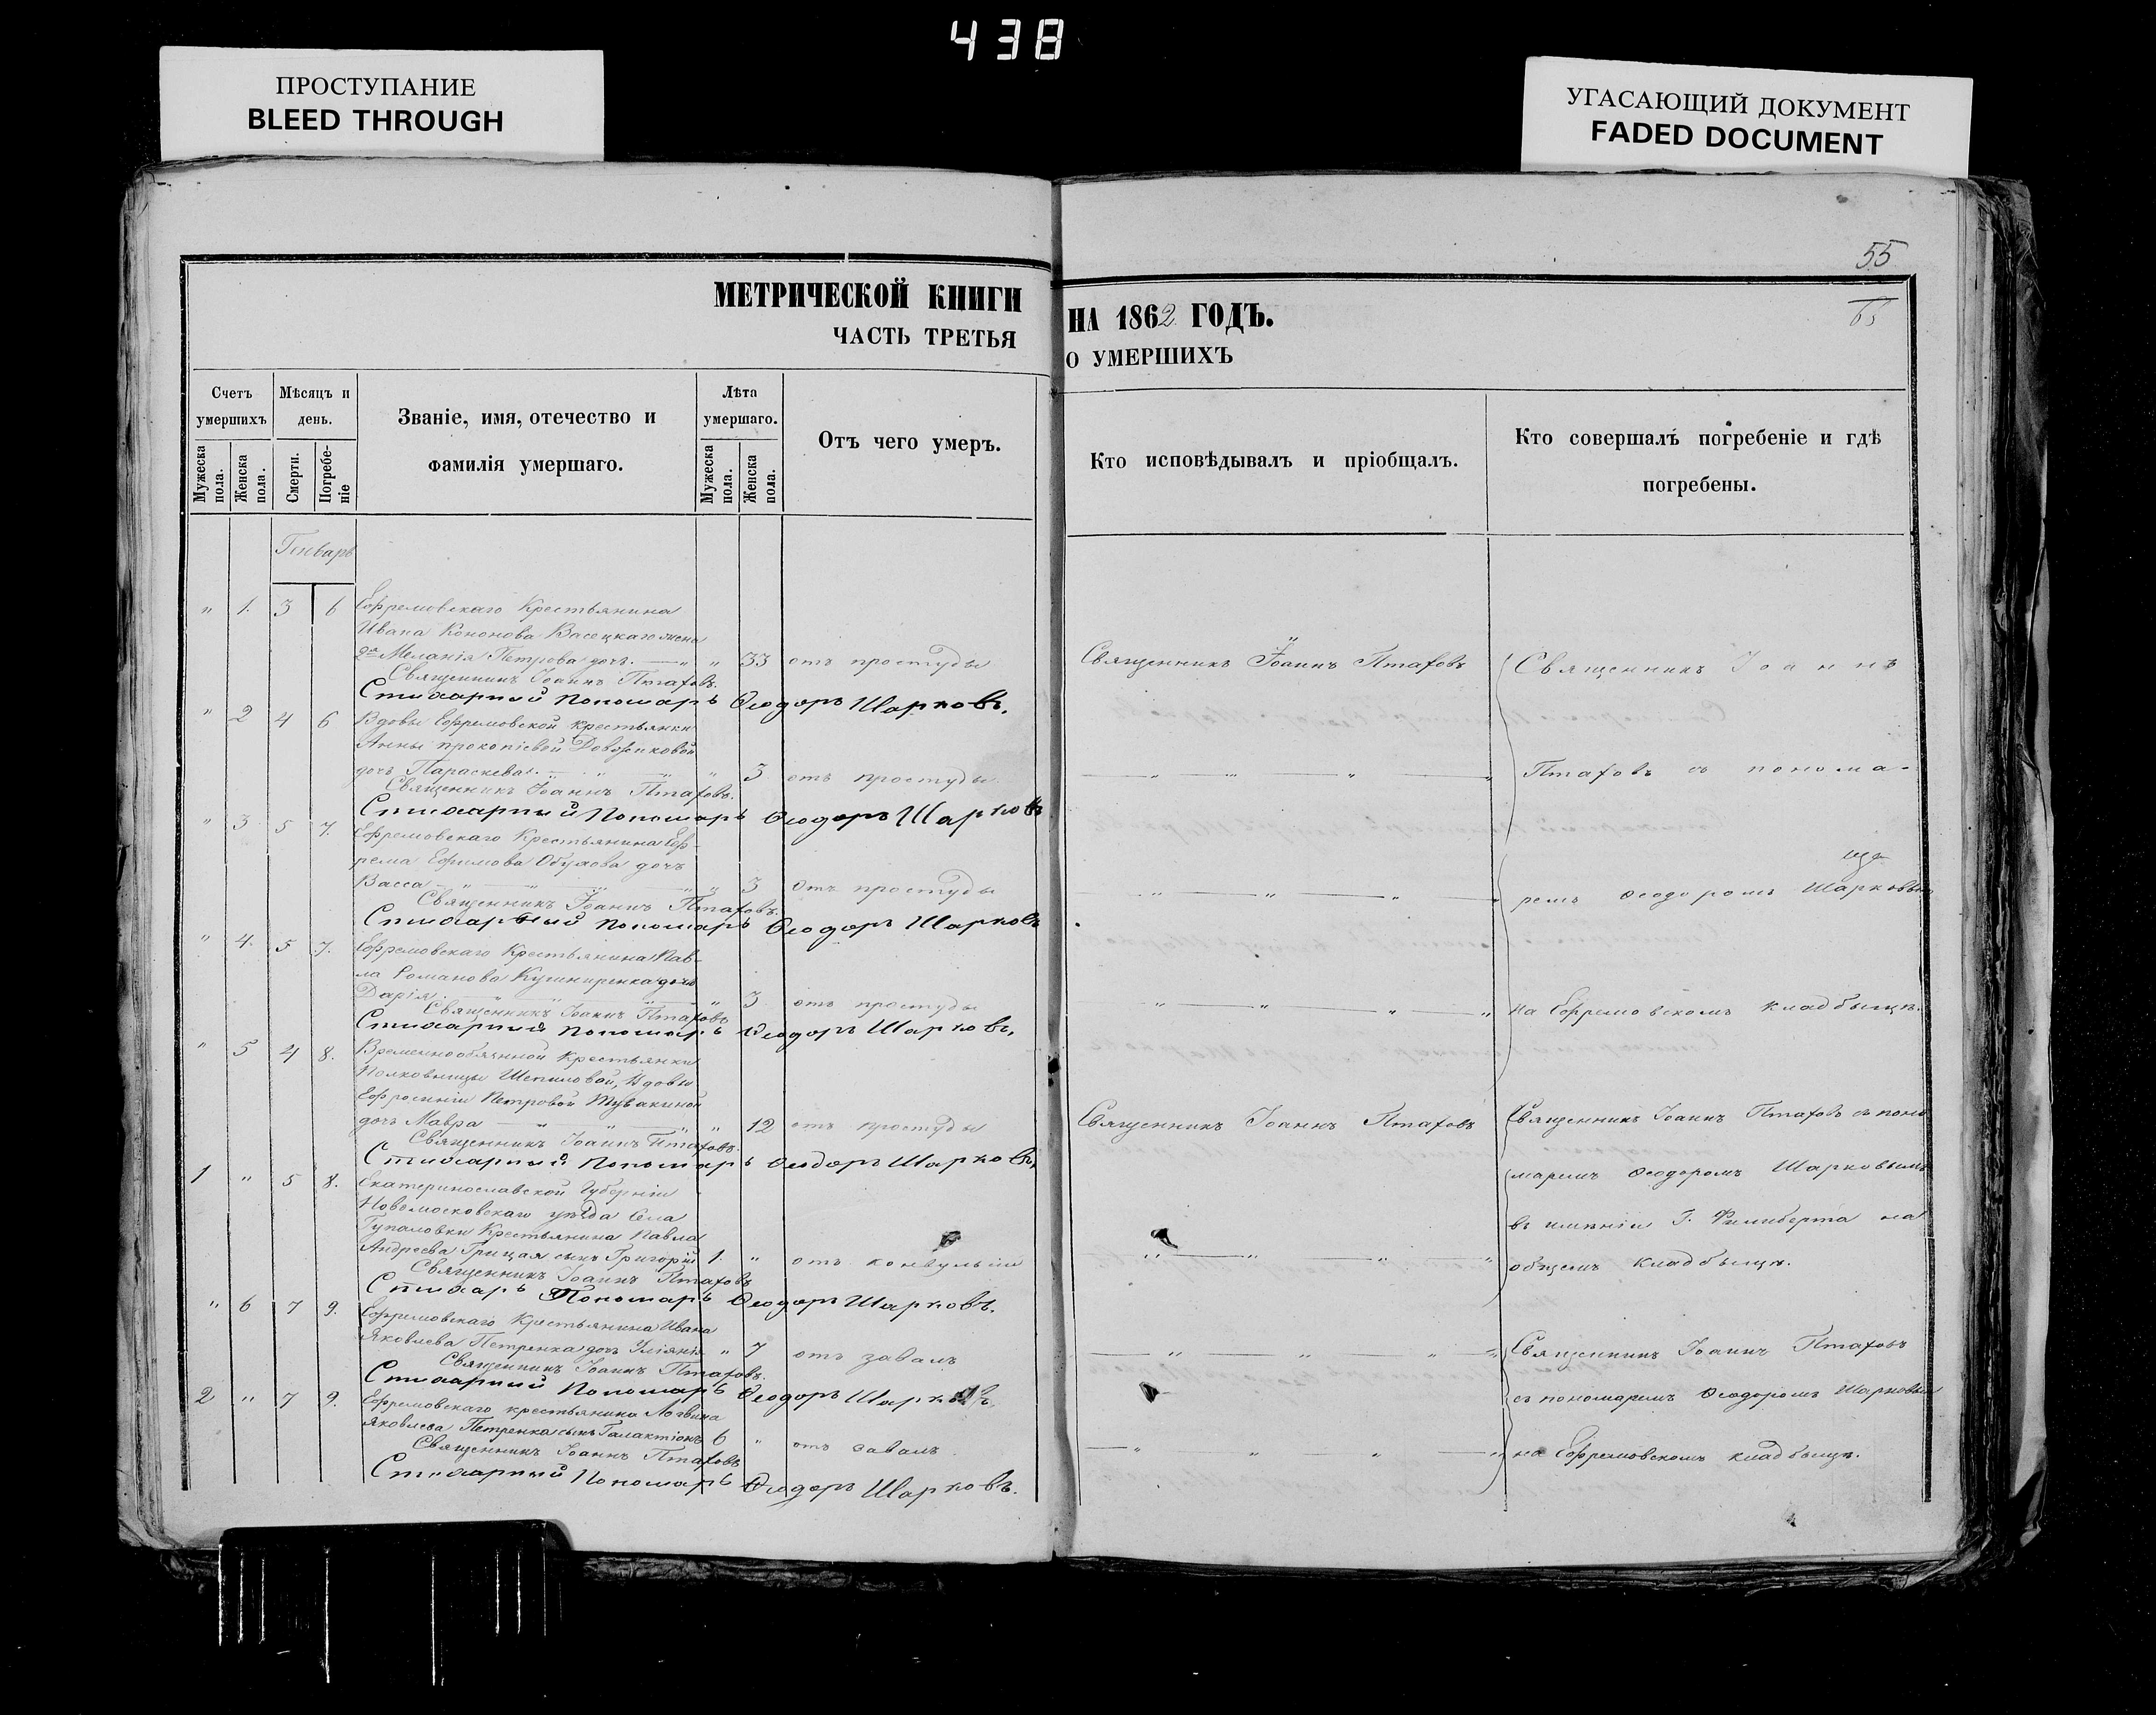 438
ПРОСТУПАНИЕ
BLEED THROUGH
УГАСАЮЩИЙ ДОКУМЕНТ
FADED DOCUMENT
55
МЕТРИЧЕСКОЙ КНИГИ
ЧАСТЬ ТРЕТЬЯ
НА 1862 ГОДЪ.
О УМЕРШИХЪ
Счетъ умершихъ
Мѣсяцъ и день.
Званіе, имя, отечество и фамилія умершаго.
Лѣта умершаго.
Отъ чего умеръ.
Кто исповѣдывалъ и пріобщалъ.
Кто совершалъ погребеніе и гдѣ погребены.
Мужеска пола.
Женска пола.
Смерти.
Погребе-ніе
Мужеска пола.
Женска пола.
Генварь
" 1. 3 6 Ефремовскаго Крестьянина
Ивана Кононова Васецкаго жена
2я Меланія Петрова доч. " " 33 отъ простуды
Священникъ Іоаннъ Птаховъ
Священникъ Іоаннъ
Священникъ Іоаннъ Птаховъ.
Стихарный Пономарь Ѳеодоръ Шарковъ.
" 2 4 6 Вдовы Ефремовской крестьянки
Анны прокопіевой
дочь Параскева. " 3 отъ простуды
Птаховъ съ понома-
Священникъ Іоаннъ Птаховъ.
Стихарный Пономарь Ѳеодоръ Шарковъ
" 3 5 7. Ефремовскаго Крестьянина Еф-
рема Ефимова дочь
Васса " 3 отъ простуды
ремъ Ѳеодоромъ Шарковым
Священникъ Іоаннъ Птаховъ.
Стихарный Пономарь Ѳеодоръ Шарковъ
" 4. 5 7. Ефремовскаго Крестьянина Пав-
ла Романова дочь
Дарія " 3 отъ простуды
на Ефремовскомъ кладбыщѣ.
Священникъ Іоаннъ Птаховъ
Стихарный Пономарь Ѳеодоръ Шарковъ,
" 5 4 8. Крестьянки
Вдовы
Ефросиніи Петровой
дочь Мавра " 12 отъ простуды
Священникъ Іоаннъ Птаховъ
Священникъ Іоаннъ Птаховъ съ поно
Священникъ Іоаннъ Птаховъ.
Стихарный Пономарь Ѳеодоръ Шарковъ,
1 " 5 8. Екатеринославской Губерніи
маремъ Ѳеодоромъ Шарковымъ
Новомосковскаго уѣзда Села
въ имѣніи Г. Филиберта на
Гупаловки Крестьянина Павла
Андреева Грицая сынъ Григорій 1. " отъ конвульсіи
общемъ кладбыщѣ.
Священникъ Іоаннъ Птаховъ
Стихарь Пономарь Ѳеодоръ Шарковъ.
" 6 7 9. Ефремовскаго Крестьянина Ивана
Яковлева Петренка дочь " 7 отъ завалъ
Священникъ Іоаннъ Птаховъ
Священникъ Іоаннъ Птаховъ.
Стихарный Пономарь Ѳеодоръ Шарковъ.
съ пономаремъ Ѳеодоромъ Шарковы
2 " 7 9. Ефремовскаго крестьянина Логвина
Яковлева Петренка сынъ Галактіонъ 6 " отъ завалъ.
на Ефремовскомъ кладбыщѣ.
Священникъ Іоаннъ Птаховъ
Стихарный Пономарь Ѳеодоръ Шарковъ.